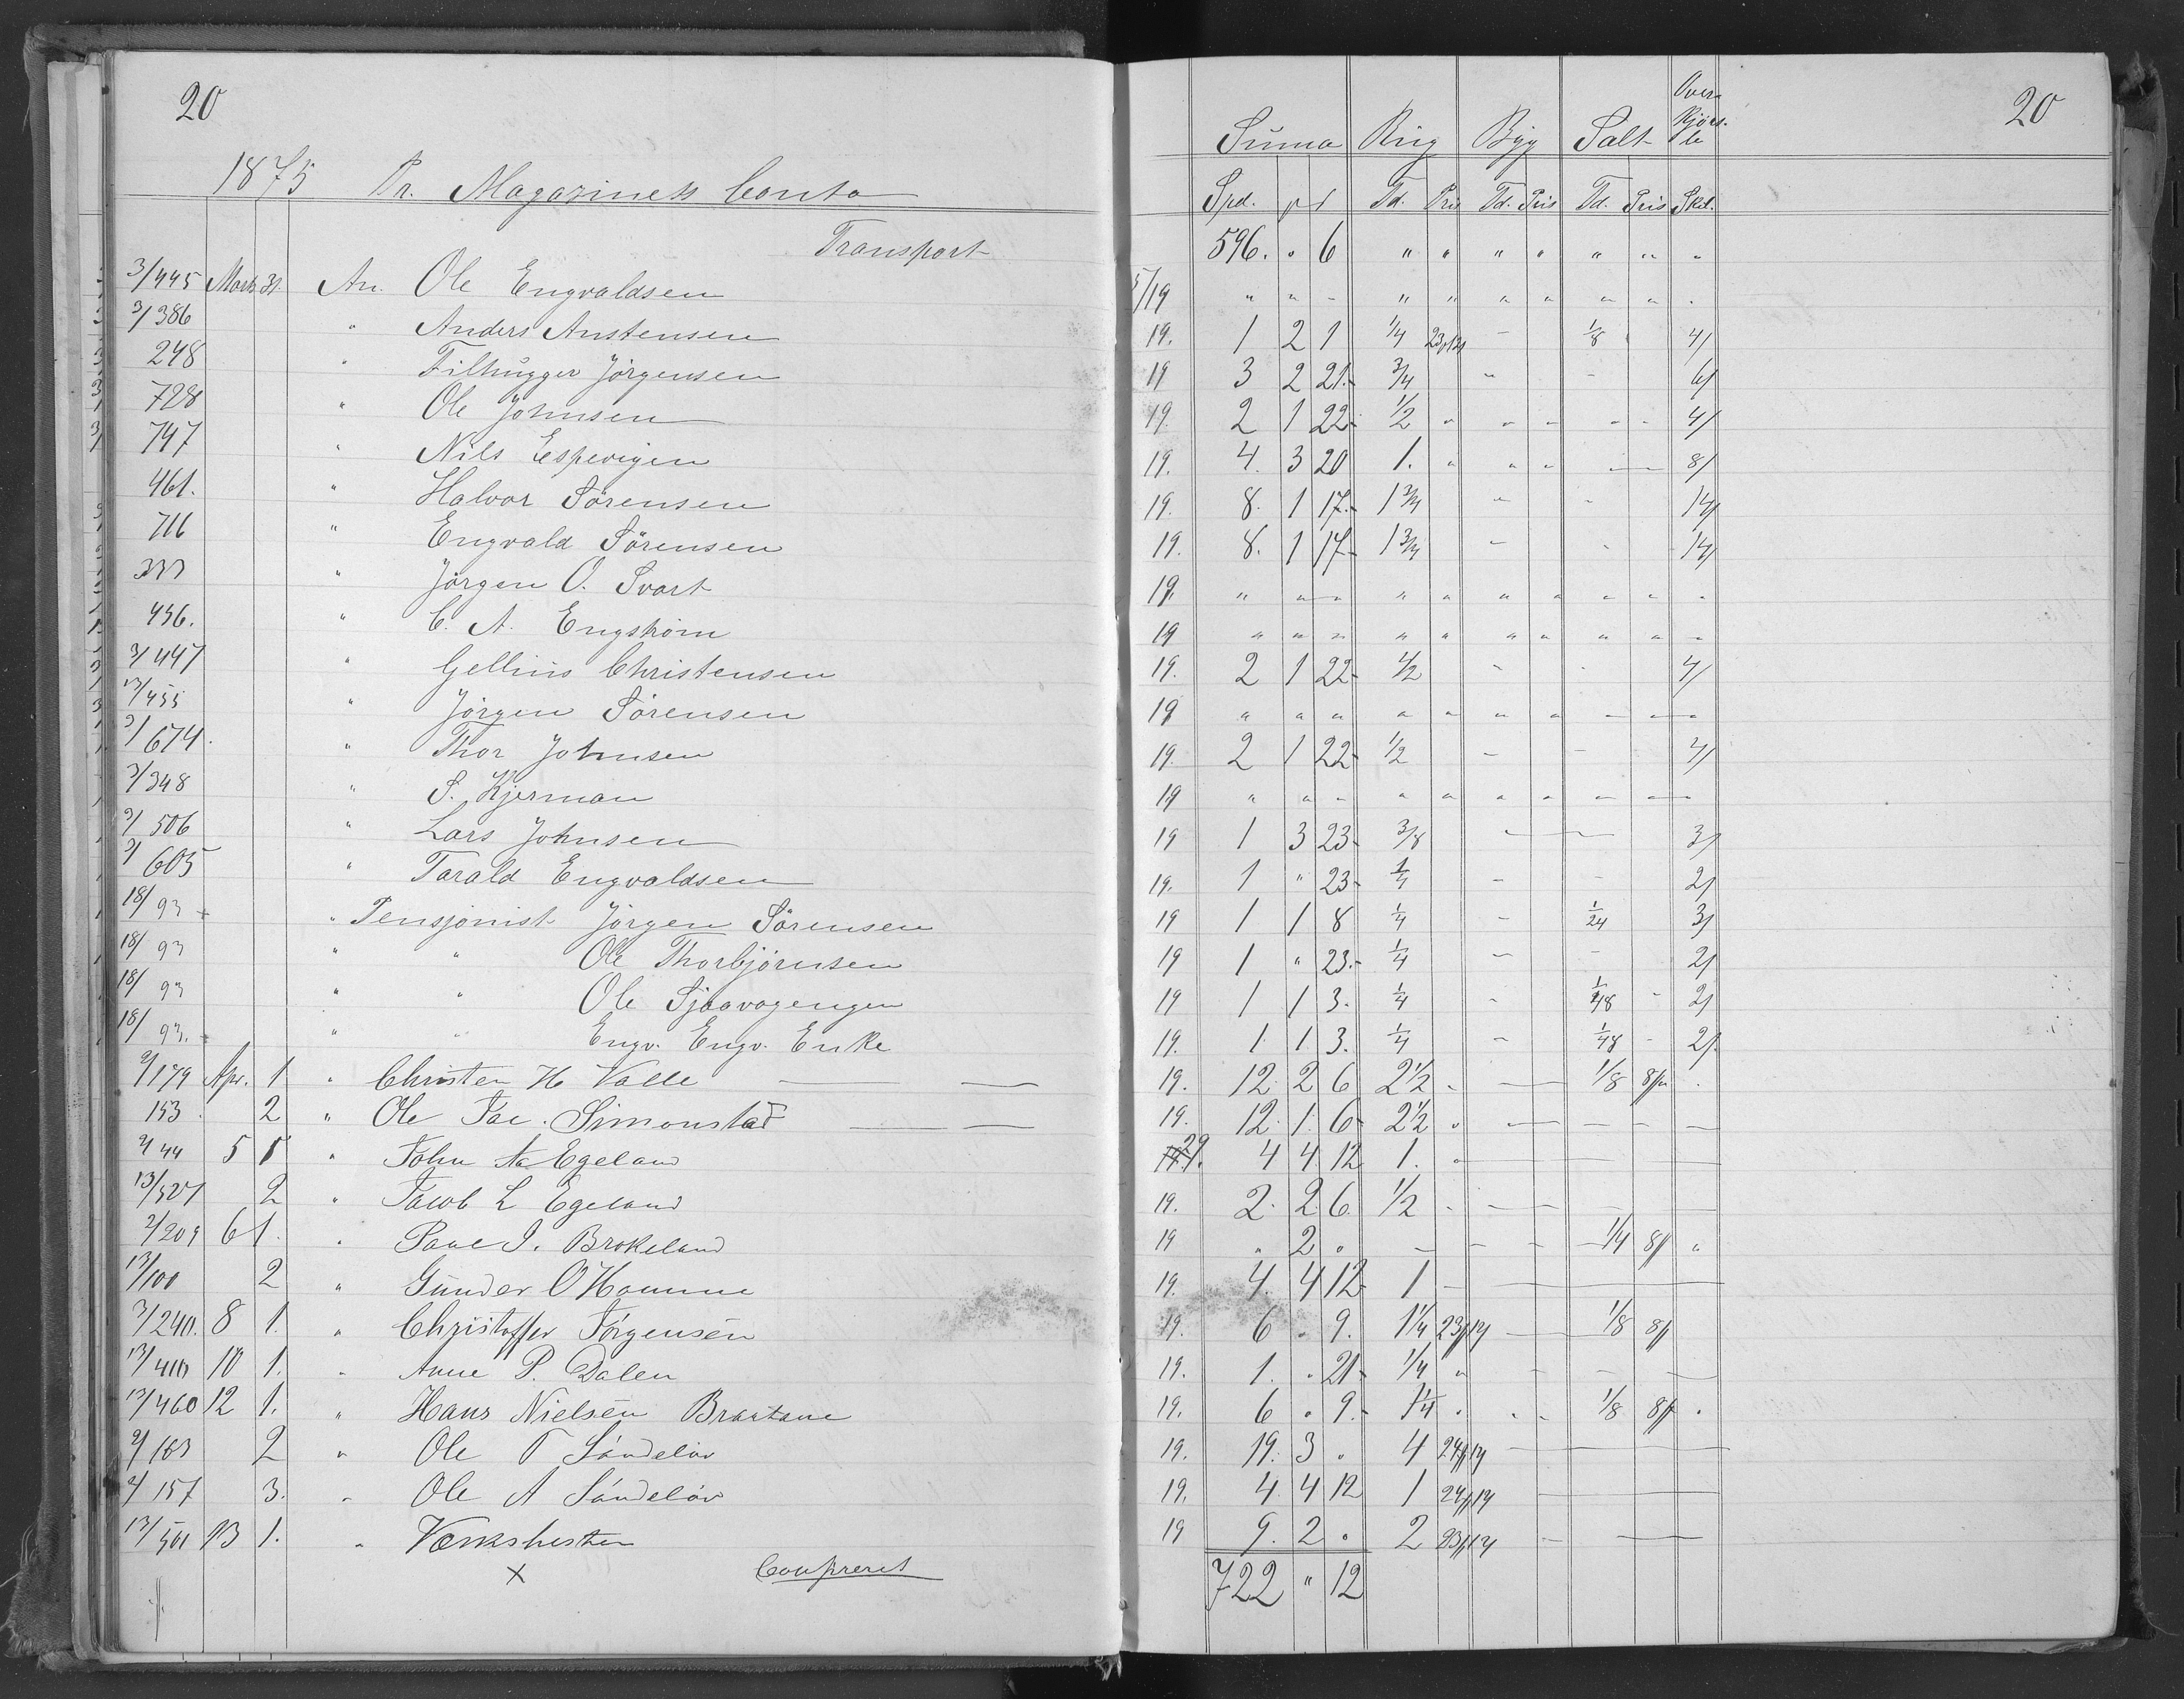 20
1875 Pr. Magazinets Conto
Transport
3/445 Marts 31. An. Ole Engvaldsen
3/386 " Anders Anstensen
248 " Filhugger Jörgensen
728 " Ole Johnsen
747 " Nils Espevigen
461. " Halvor Sörensen
716 " Engvald Sörensen
333 " Jörgen O. Svart
456. " C. A. Engström
3/447 " Gellius Christensen
13/455 " Jörgen Sörensen
3/674. " Thor Johnsen
3/348 " S. Kjerman
3/506 " Lars Johnsen
3/605 " Tarald Engvaldsen
18/93 " Pensjonist Jörgen Sörensen
18/93 " " Ole Thorbjörnsen
18/93 " " Ole Sjaavagengen
18/93. " " Engv. Engv. Enke
2/179 Apr. 1 " Christen H Valle
153. 2 " Ole Jac. Simonstad
2/44 5 1 " John A Egeland
13/527 2 " Jacob L Egeland
2/209 6 1. " Paul J. Brokeland
13/100 2 " Gunder O Homme
3/240. 8 1. " Christoffer Jörgensen
13/410 10 1. " Anne P. Dalen
13/460 12 1. " Hans Nielsen Braatane
2/183 2 " Ole T Sándelöv
2/157 3. " Ole A Sándelöv
13/501 13 1. " Værkshesten
x Confereret
20
Suma Rug Byg Salt Over Kjörs- le
Spd. Td. Pris Td. Pris Td. Pris Skil.
596. " 6 " " " " " " "
5/19 " " - " " " " " " "
19. 1 2 1 1/4 1/8 4/
19 3 2 21. 3/4 " - 6/
19. 2 1 22. 1/2 " " " " " 4/
19. 4. 3 20 1. " " " 8/
19. 8. 1 17. 1 3/4 " " 14/
19. 8. 1 17 1 3/4 - - 14/
19. " " " " " " " " " "
19 " " " " " " " " " "
19. 2 1 22. 1/2 - - 4/
19 " " " " " " " - - -
19. 2 1 22 1/2 - - 4/
19 " " - " " " " - - -
19 1 3 23. 3/8 3/
19. 1 " 23. 1/4 - - 2/
19 1 1 8 1/4 - 1/24 3/
19 1 " 23. 1/4 - - 2/
19 1 1 3. 1/4 - 1/48 - 2/
19. 1. 1 3. 1/4 - 1/48 - 2/
19. 12. 2 6 2 1/2 " 1/8 8/
19. 12. 1. 6 2 1/2 "
29. 4 4 12 1. "
19. 2. 2 6. 1/2 -
19 " 2 " - - - 1/4 8/ "
19. 4. 4 12 1 -
19. 6 " 9. 1 1/4 23/14 1/8 8/
19. 1. " 21. 1/4 "
19. 6 " 9. 1 1/4 " " - 1/8 8/ "
19. 19. 3 " 4 24/14
19. 4. 4 12 1 24/14
19 9. 2 " 2 23/14
722 " 12